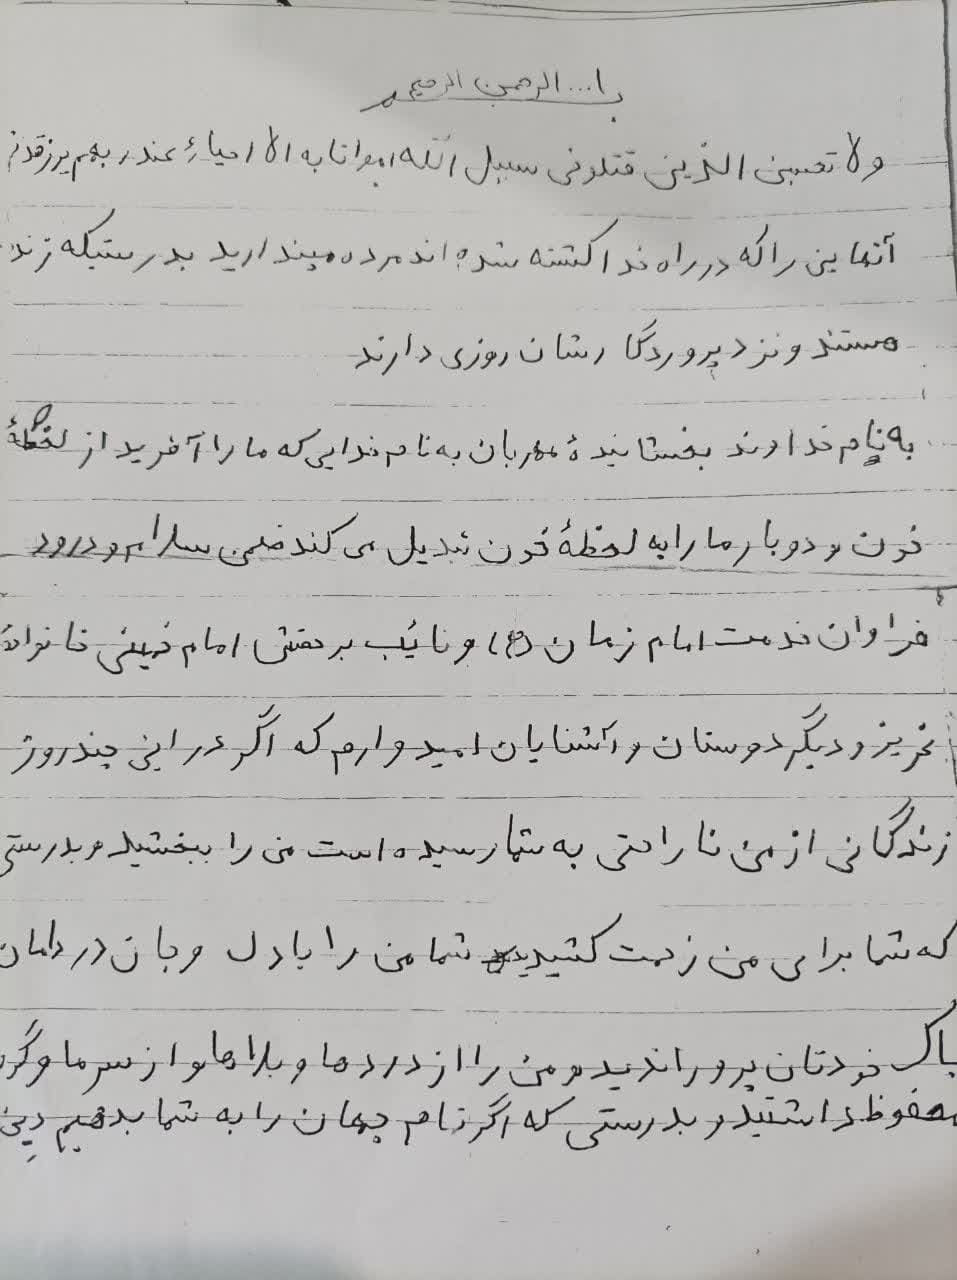 با... الرحمن الرحیم
ولا تحسبن الذین قتلو فی سبیل الله امواتا به الا احیاء عند ربهم یرزقون
آنهایی را که در راه خدا کشته شده اند مرده مپندارید بدرستیکه زنده
هستند و نزد پروردگارشان روزی دارند
به نام خداوند بخشایندهٔ مهربان به نام خدایی که ما را آفرید از لخظهٔ
خون و دوباره ما را به لخظهٔ خون تبدیل می کند ضمن سلام و درود
فراوان خدمت امام زمان (عج) و نائب بر حقش امام خمینی خانوادهٔ
عزیز و دیگر دوستان و آشنایان امیدوارم که اگر در این چند روز
زندگانی از من ناراحتی به شما رسیده است من را ببخشید و بدرستی
که شما برای من زحمت کشیدید شما من را با دل و جان در دامان
پاک خودتان پروراندید و من را از دردها و بلاها و از سرما و گر
محفوظ داشتید و بدرستی که اگر تمام جهان را به شما بدهیم دین